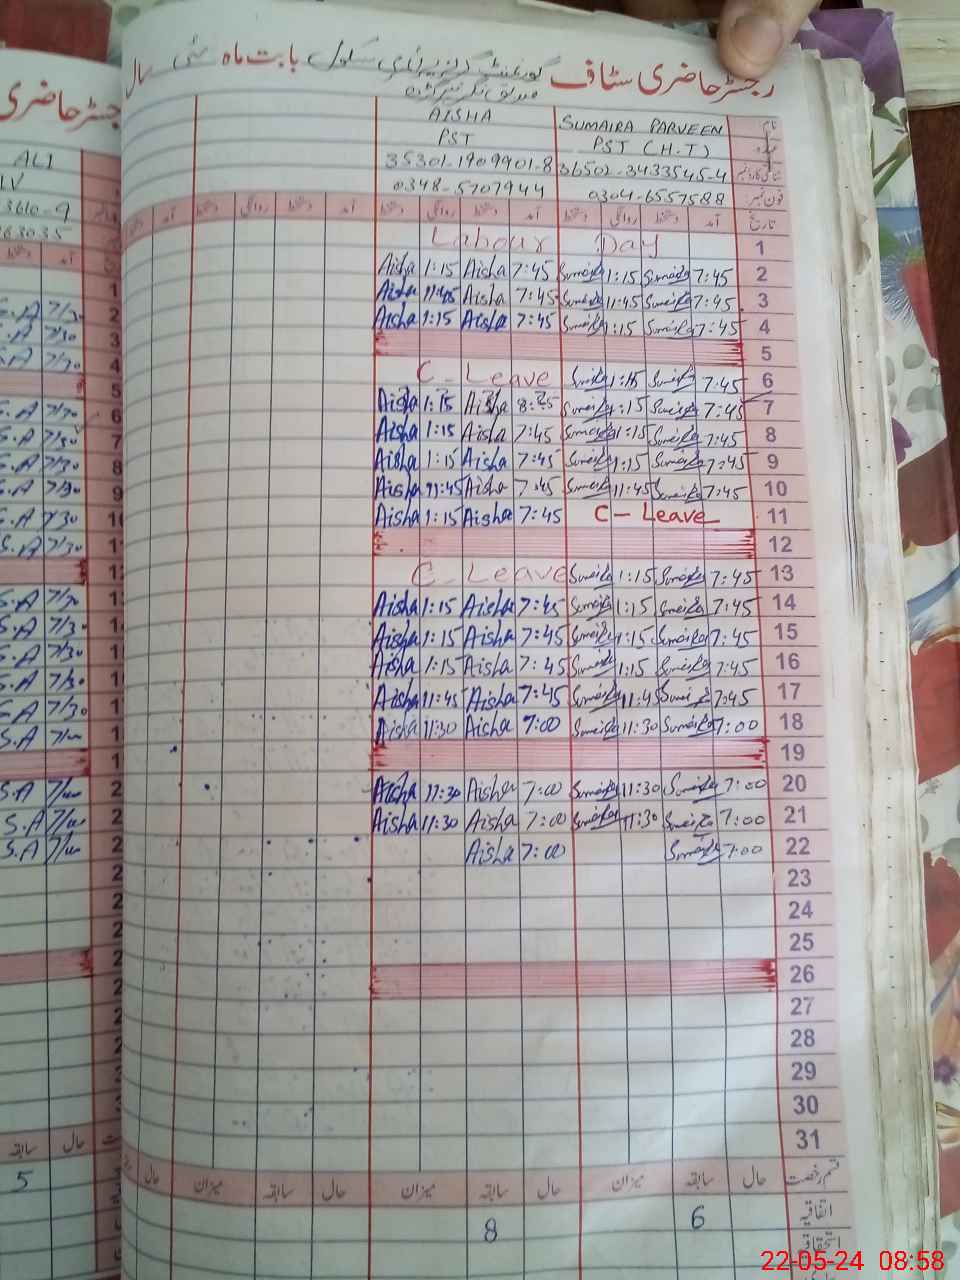 رجسٹر حاضری سٹاف گورنمنٹ گرلز پرائمری سکول بابت ماہ مئی سال
نام SUMAIRA PARVEEN AISHA
عہدہ PST (H.T) PST
شناختی کارڈ نمبر 36502-3433545-4 35301-1909901-8
فون نمبر 0304-6557588 0348-5707944
تاریخ آمد دستخط روانگی دستخط آمد دستخط روانگی دستخط آمد دستخط روانگی دستخط آمد دستخط
Labour Day 1
Aisha 1:15 Aisha 7:45 Sumaira 1:15 Sumaira 7:45 2
Aisha 11:45 Aisha 7:45 Sumaira 11:45 Sumaira 7:45 3
Aisha 1:15 Aisha 7:45 Sumaira 1:15 Sumaira 7:45 4
5
C-Leave Sumaira 1:15 Sumaira 7:45 6
Aisha 1:15 Aisha Sumaira 1:15 Sumaira 7:45 7
Aisha 1:15 Aisha 7:45 Sumaira 1:15 Sumaira 7:45 8
Aisha 1:15 Aisha 7:45 Sumaira 1:15 Sumaira 7:45 9
Aisha 11:45 Aisha 7:45 Sumaira 11:45 Sumaira 7:45 10
Aisha 1:15 Aisha 7:45 C-Leave 11
12
C-Leave Sumaira 1:15 Sumaira 7:45 13
Aisha 1:15 Aisha 7:45 Sumaira 1:15 Sumaira 7:45 14
Aisha 1:15 Aisha 7:45 Sumaira 1:15 Sumaira 7:45 15
Aisha 1:15 Aisha 7:45 Sumaira 1:15 Sumaira 7:45 16
Aisha 11:45 Aisha 7:45 Sumaira 11:45 Sumaira 7:45 17
Aisha 11:30 Aisha 7:00 Sumaira 11:30 Sumaira 7:00 18
19
Aisha 11:30 Aisha 7:00 Sumaira 11:30 Sumaira 7:00 20
Aisha 11:30 Aisha 7:00 Sumaira 11:30 Sumaira 7:00 21
Aisha 7:00 Sumaira 7:00 22
23
24
25
26
27
28
29
30
31
قسم رخصت حال سابقہ میزان حال سابقہ میزان حال سابقہ میزان حال
اتفاقیہ 6 8
استحقاقیہ
رجسٹر حاضری
ALI
آمد دستخط
S.A 7/30
S.A 7/30
S.A 7/30
S.A 7/30
S.A 7/30
S.A 7/30
S.A 7/30
S.A 7/30
S.A 7/30
حال سابقہ
5
22-05-24 08:58